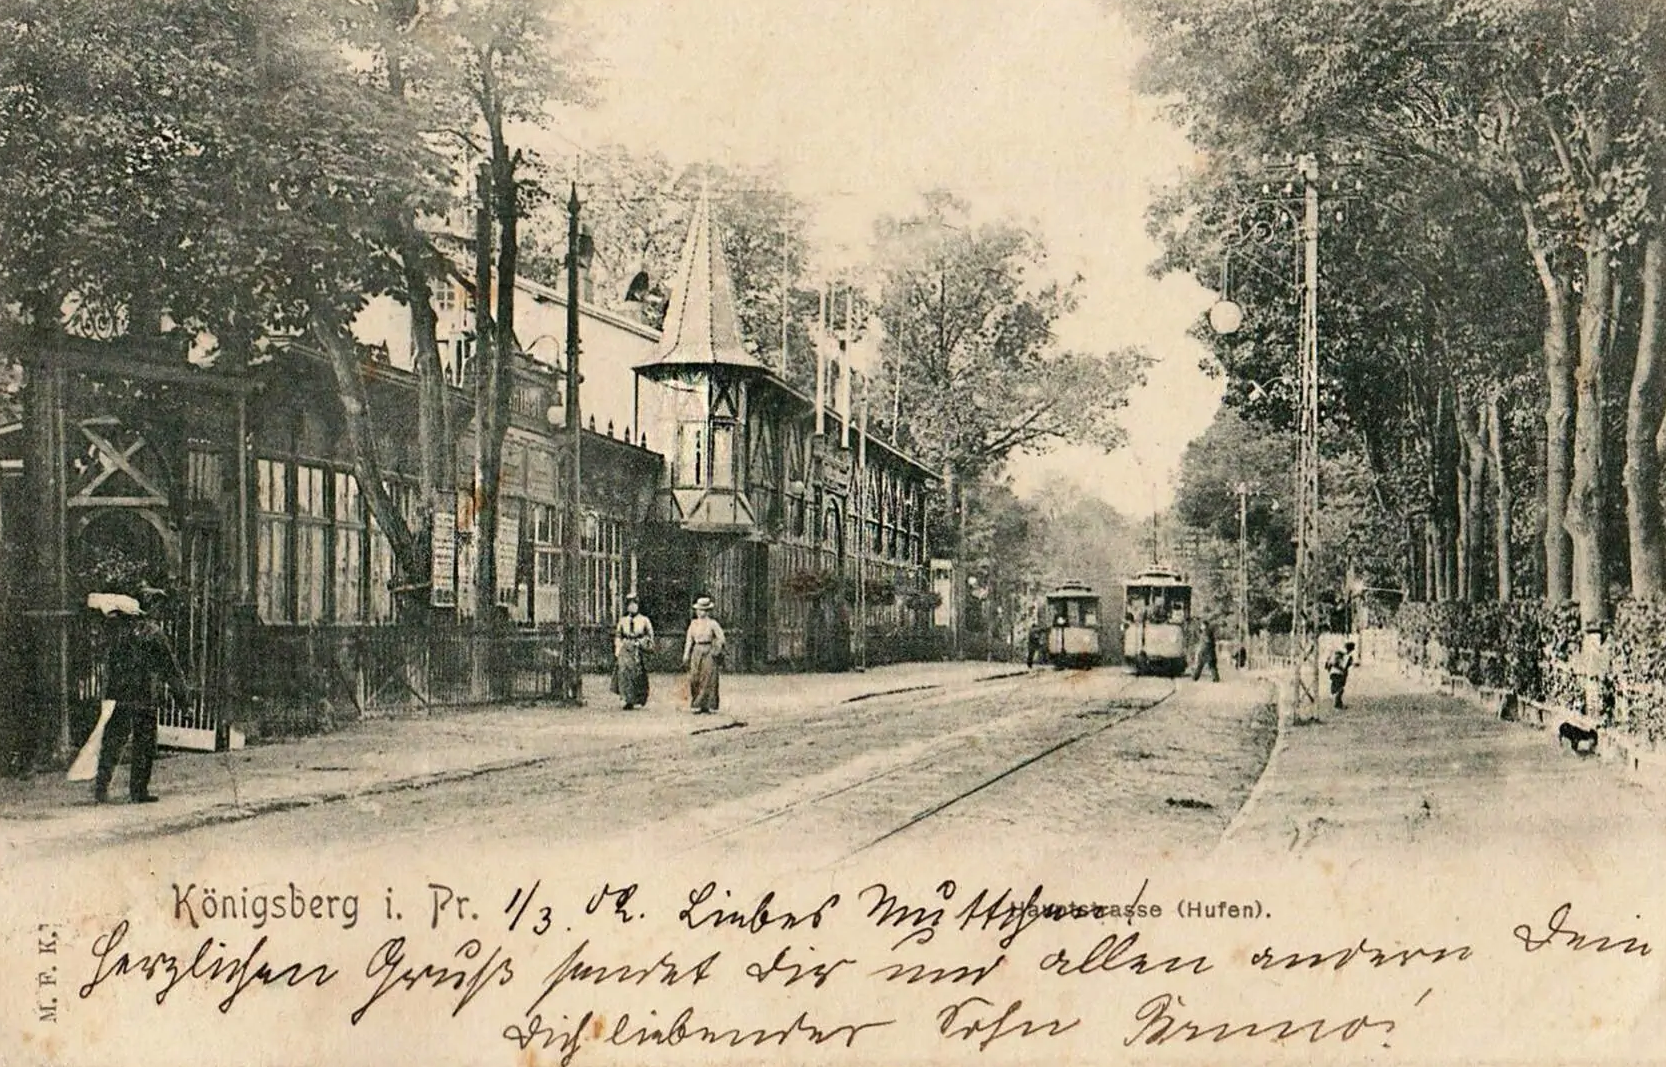 Königsberg i. Pr. 1/3. 02. Liebes Muttchen!
Hauptstrasse (Hufen).
Herzlichen Gruß sendet Dir und allen andern Dein
Dich liebender Sohn Bruno!
M. F. K.